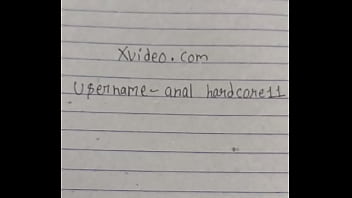 Xvideo.com
Username- anal hardcore11